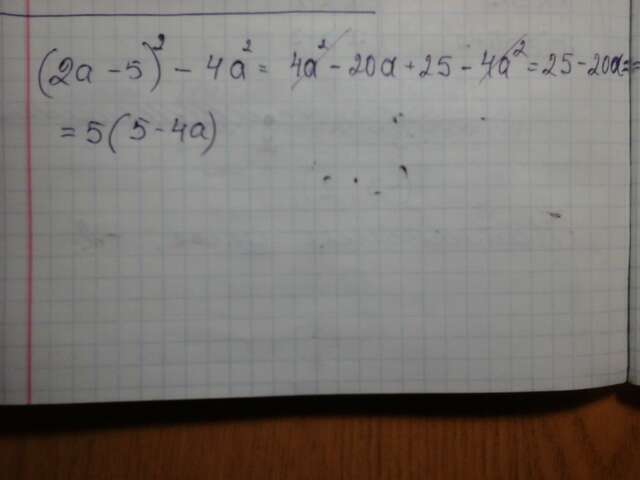 (2a - 5)² - 4a² = 4a² - 20a + 25 - 4a² = 25 - 20a =
= 5(5 - 4a)